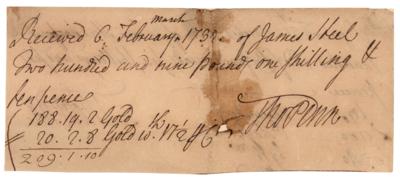 March
Received 6 February 173 of James Steel
Two hundred and nine pounds one shilling &
ten pence
188.19.2 Gold
20.2.8 Gold
209.1.10
Tho Penn